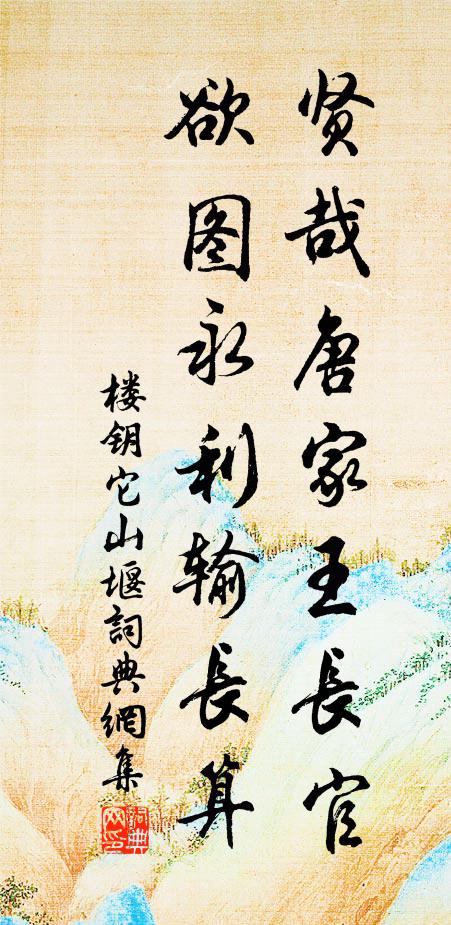 贤哉唐家王長官
欲图永利输長算
楼钥它山堰詞典網集
詞典